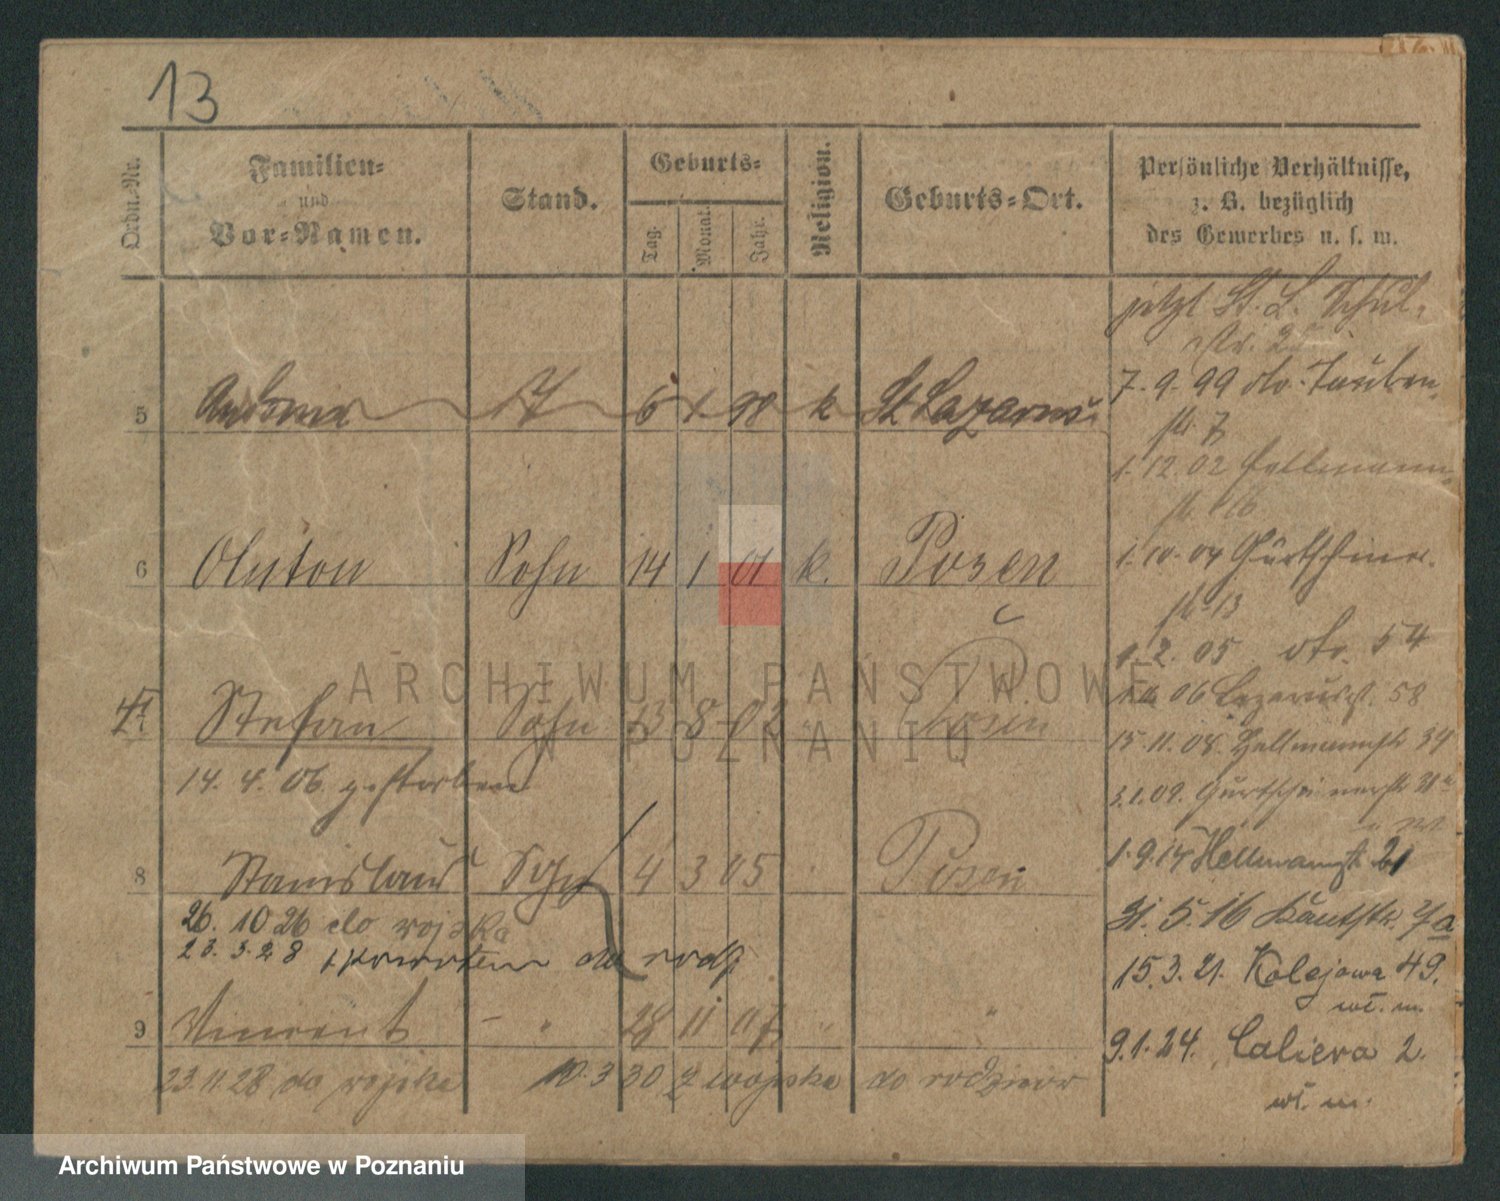 13
Ordn.-Nr.
Familien-
und
Vor-Namen.
Stand.
Geburts-
Tag.
Monat.
Jahr.
Religion.
Geburts-Ort.
Persönliche Verhältnisse,
z. B. bezüglich
des Gewerbes u. s. w.
jetzt St. L. Schul-
str.
5 6 98 k St Lazarus
7. 9. 99 Tauben
str 7
1. 12. 02 Hellmann
str 16
6 Anton Sohn 14 1 01 k. Posen
1. 10. 04 Gurtschiner
str 13
1. 2. 05 str. 54
7 Stefan Sohn 23 8 02 Posen
06 Lazarusst. 58
15. 11. 08. Hellmannstr 34
14. 4. 06. gestorben
3. 1. 09. Gurtschinerstr 31a
8 Stanislaus Sohn 4 3 05 Posen
1. 9. 14 Hellmannstr 21
26. 10 26 do wojska
31. 5. 16 Kantstr. 7a
23. 3. 28 z powrotem do rodz
15. 3. 21. Kolejowa 49.
wł. m.
9 Vincent - " 28 11 07 " "
9. 1. 24. Caliera 2.
23. 11. 28 do wojska 10. 3 30 z wojska do rodziców
wł. m.
ARCHIWUM PAŃSTWOWE
W POZNANIU
Archiwum Państwowe w Poznaniu